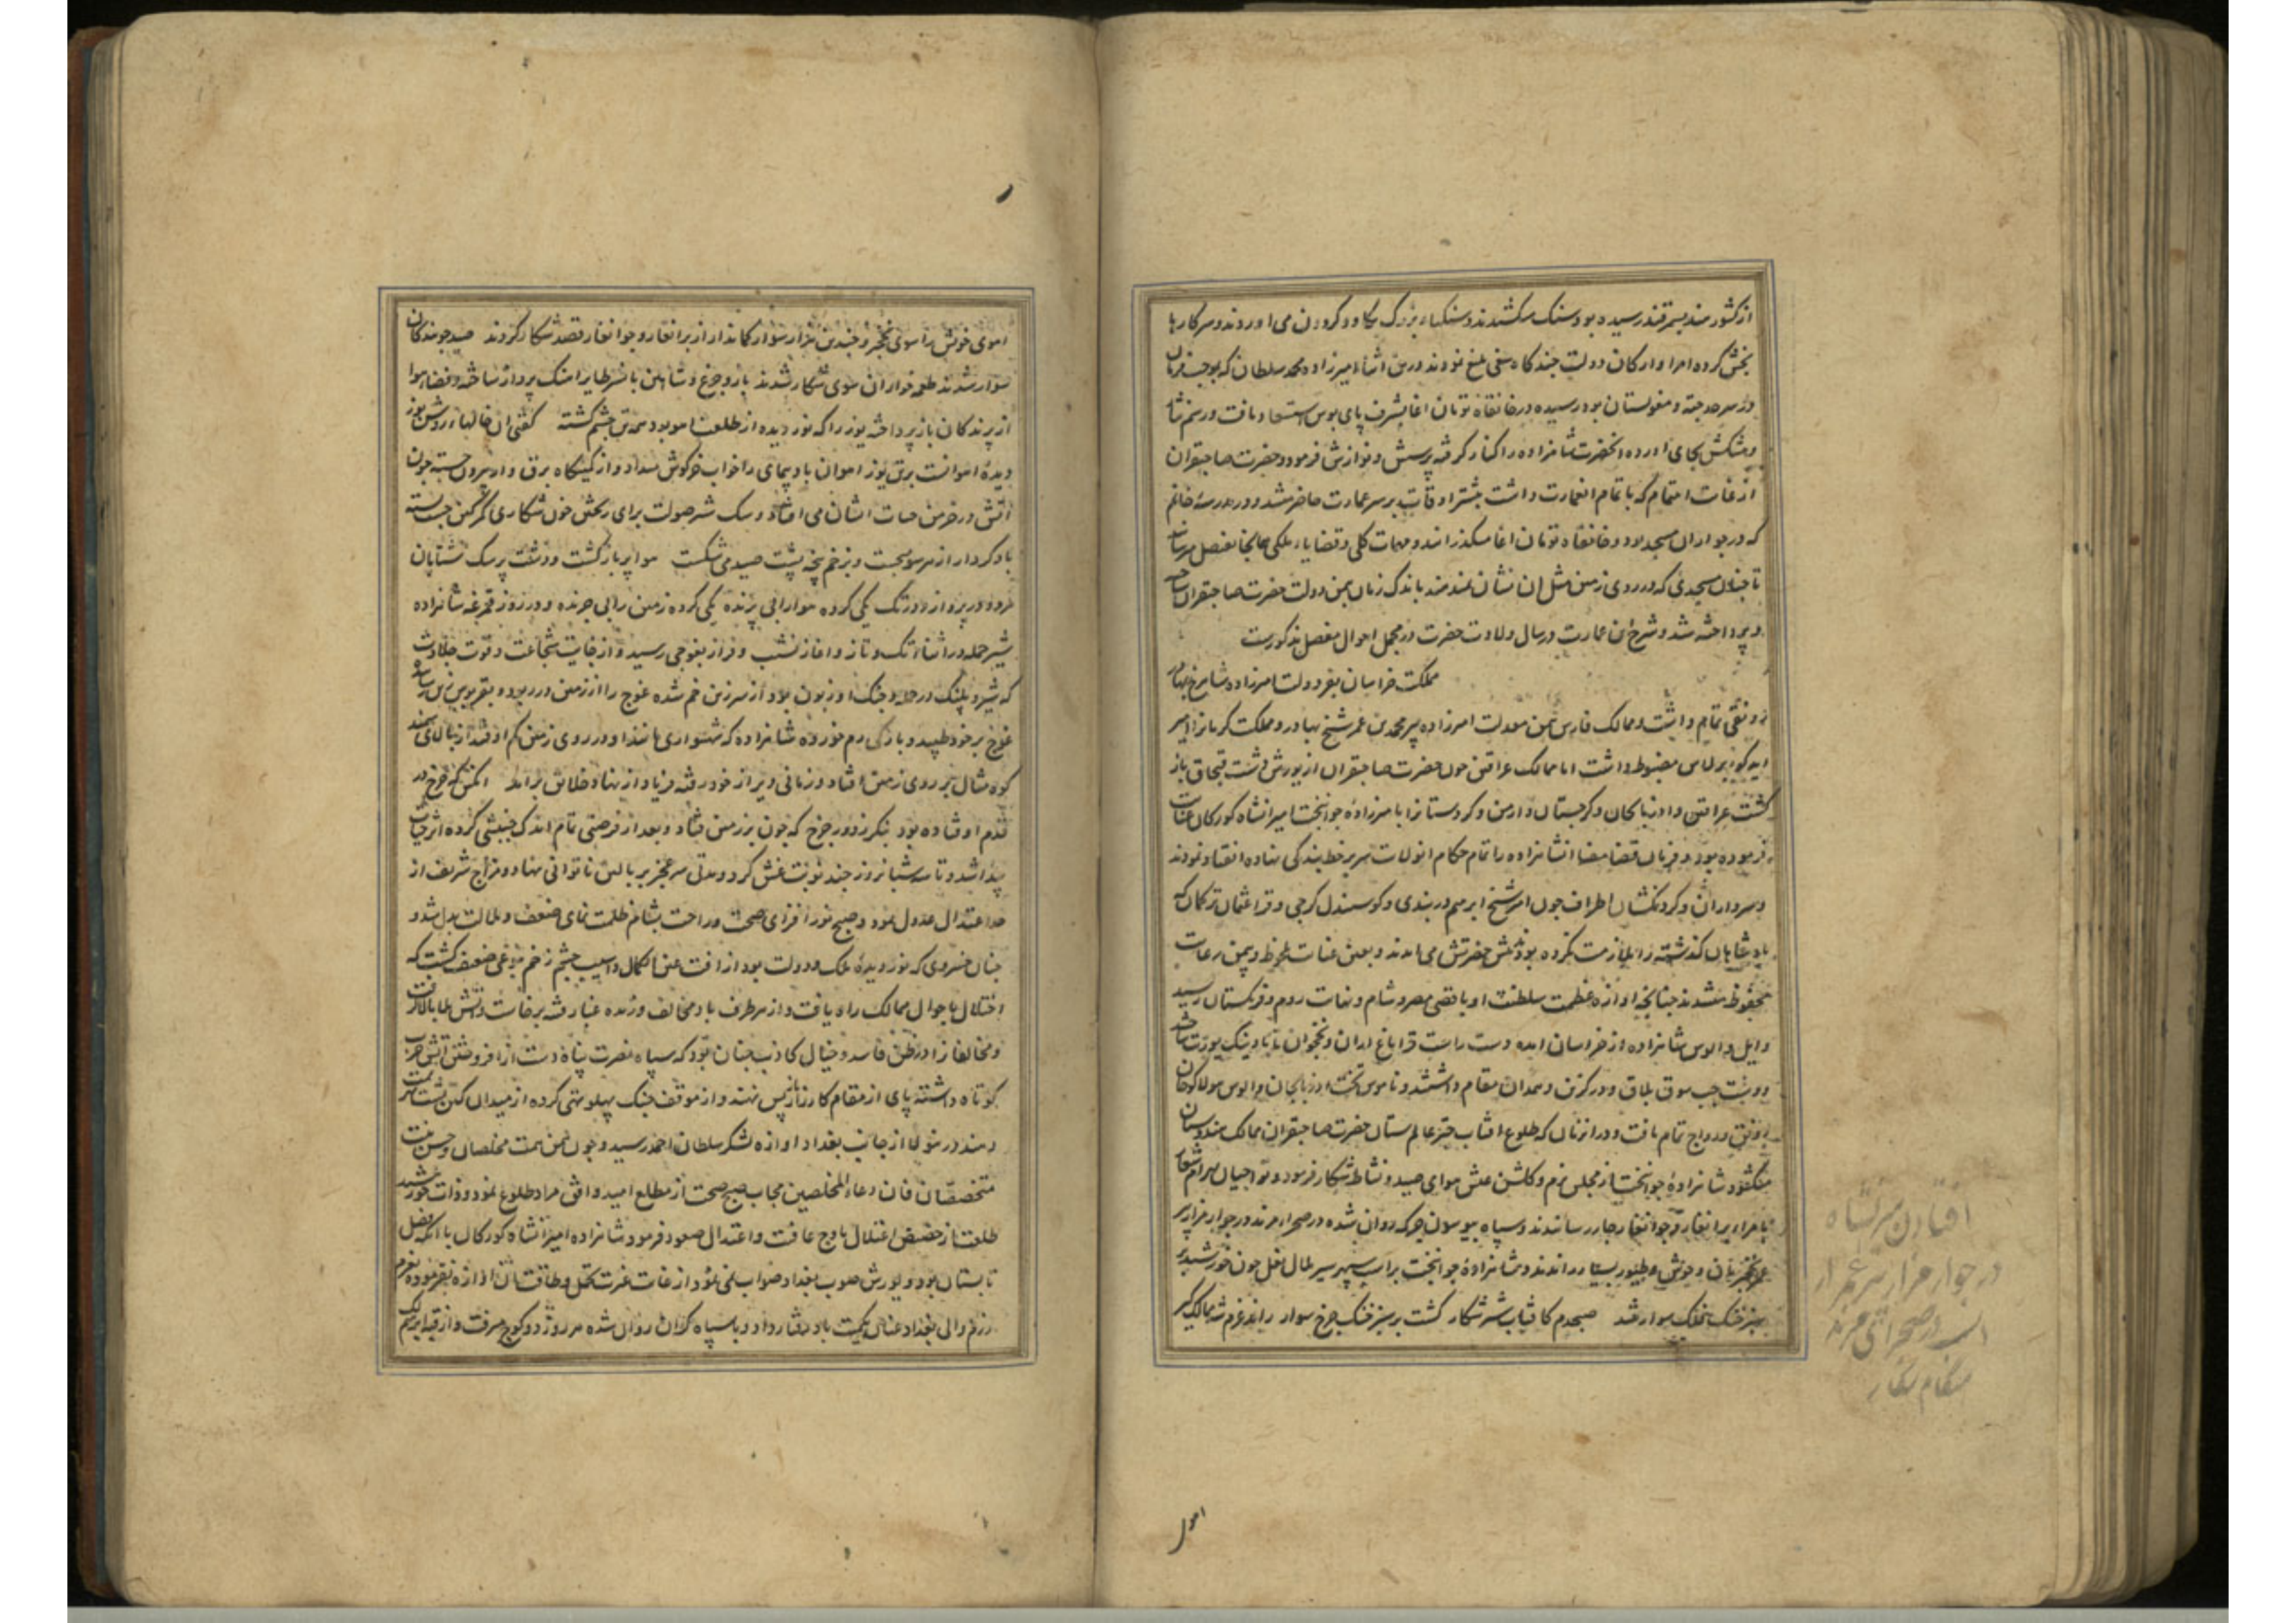 از کشور هند بسمرقند رسیده بود سنک میکشیدند و سنکهاء بزرک بکاو و کردون می اوردند و سرکارها
بخش کرده امرا و ارکان دولت چند کاه سعی بلیغ نمودند درین اثنا امیرزاده محمد سلطان که بموجب فرمان
در سرحد جته و مغولستان بود رسیده در خانقاه تومان اغا بشرف پای بوس استسعاد یافت و رسم نثار
و پیشکش بجای اورده انحضرت شاهزاده را کنار کرفته پرسش و نوازش فرمود و حضرت صاحبقران
از غایت اهتمام که باتمام انعمارت داشت بیشتر اوقات بر سر عمارت حاضر میشد و در مدرسه خانم
که در جوار ان مسجد بود و خانقاه تومان اغا میکذرانید و مهمات کلی و قضایاء ملکی همانجا بفیصل میرساند
تا چنان مسجدی که در روی زمین مثل ان نشان نمیدهند باندک زمان بیمن دولت حضرت صاحبقران ساخته
و پرداخته شد و شرح این عمارت در سال ولادت حضرت در مجمل احوال مفصل مذکورست
مملکت خراسان بفر دولت امیرزاده شاهرخ بهادر
رونقی تمام داشت و ممالک فارس بیمن معدلت امیرزاده پیر محمد بن عمر شیخ بهادر و مملکت کرمانرا امیر
ایدکو برلاس مضبوط داشت اما ممالک عراقین چون حضرت صاحبقران از یورش دشت قبچاق باز
کشت عراقین و اذربایجان و کرجستان و ارمن و کردستانرا بامیرزاده جوانبخت میرانشاه کورکان عنایت
فرموده بود و فرمان قضا مضا انشاهزاده را تمام حکام انولایت سر بر خط بندکی نهاده انقیاد نمودند
و سرداران و کردنکشان اطراف چون امیر شیخ ابرهیم دربندی و کوسیندل کرجی و قرا عثمان ترکمان که
پادشاهان کذشته را ملازمت نکرده بود پیش حضرتش می امدند و بعین عنایت ملحوظ و بیمن رعایت
محفوظ میشدند چنانچه اوازه عظمت سلطنت او باقصی مصر و شام و نهایت روم و فرنکستان رسید
و ایل و الوس شاهزاده از خراسان امده دست راست قراباغ اران و نخجوان تا یورت ساخته
و دست چپ سوق بلاق و درکزین و همدان مقام داشتند و ناموس تخت اذربایجان و الوس هولاکوخان
رونق و رواج تمام یافت و در انزمان که طلوع افتاب چتر عالم ستان حضرت صاحبقران ممالک هندوستان
میکشود شاهزاده جوانبخت از مجلس بزم و کلشن عیش هوای صید و نشاط شکار فرمود و تواجیان بهرام شعار
بامراء برانغار و جوانغار جار رسانیدند و سپاه جرکه روان شده در صحراء مرند در جوار مزار پیر
عمر نخجربان وحوش و طیور بسیار راندند و شاهزاده جوانبخت براسب سپهر سیر هلال نعل چون خورشید بر
سبز خنک فلک سوار شد صبحدم کافتاب شیر شکار کشت بر سبز خنک چرخ سوار راند عزم شه ممالک کیر
افتادن میرنشاه
در جوار مزار پیر عمر از
اسب در صحرای مرند
هنکام شکار
اهو
اهوی خویش را سوی نخجیر و چندین هزار سوار کماندار از برانغار و جوانغار قصد شکار کردند صید جویندکان
سوار شدند طعمه خواران سوی شکار شدند باز و چرغ و شاهین با نسر طایر اهنک پرواز ساخته و فضاء هوا
از پرندکان باز پرداخته یوز را که نور دیده از طلعت اهو بود همه تن چشم کشته کفتی ان خالها بر روشن یوز
دیدۀ اهوانست برتن یوز اهوان بادپیمای را خواب خرکوش میداد و از کمینکاه برق وار بیرون جسته چون
اتش در خرمن حیات ایشان می افتاد و سک شیر صولت برای ریختن خون شکاری کمر کین چست بسته
باد کردار از هر سو میجست و بزخم پنجه پشت صید می شکست هوا پر باز کشت و دشت پر سک شتابان
هردو در پرواز و در تک یکی کرده هوا را بی پرنده یکی کرده زمین را بی چرنده و در روز قمرغه شاهزاده
شیر حمله در اثناء تک و تاز و اغاز نشیب و فراز بقوجی رسید و از غایت شجاعت و قوت جلادت
که شیر و پلنک در حمله و جنک او زبون بود از سر زین خم شده غوچ را از زمین در ربود و بقربوس زین رساند
غوچ بر خود طپید و بارکی رم خورده شاهزاده که شهسواری مانند او در روی زمین کم افتد از بالای سمند
کوه مثال بر روی زمین افتاد و زمانی دیر از خود رفته فریاد از نهاد خلایق برامد انکس که چرخ در
قدم او فتاده بود بنکر ز دور چرخ که چون بر زمین فتاد و بعد از فرصتی تمام اندک جنبشی کرده اثر حیات
پیدا شد و تا سه شبانروز چند نوبت غش کرد و مدتی سر عجز بر بالین ناتوانی نهاد و مزاج شریف از
حد اعتدال عدول نمود و صبح نور افزای صحت و راحت بشام ظلمت نمای ضعف و ملالت بدل شد و
چنان خسروی که نور دیدۀ ملک و دولت بود از افت عین الکمال و اسیب چشم زخم بنوعی ضعیف کشت که
اختلال باحوال ممالک راه یافت و از هر طرف باد مخالف وزیده غبار فتنه برخاست و اتش بلا بالا کرفت
و مخالفانرا در ظن فاسد و خیال کاذب چنان بود که سپاه نصرت پناه دست از افروختن اتش حرب
کوتاه داشته پای از مقام کارزار باز پس نهند و از موقف جنک پهلو تهی کرده از میدان کین پشت هزیمت
دهند درین ولا از جانب بغداد اوازه لشکر سلطان احمد رسید و چون بیمن همت مخلصان و حسن نیت
متخصصان فان دعاء المخلصین مجاب صبح صحت از مطلع امید و افق مراد طلوع نمود و ذات خورشید
طلعت از حضیض اعتلال باوج عافیت و اعتدال صعود فرمود شاهزاده امیرانشاه کورکان با انکه فصل
تابستان بود و یورش صوب بغداد صواب نمی نمود از غایت غیرت تحمل و طاقت اوازه نفرموده بعزم
رزم والی بغداد عنان بکمیت باد رفتار داد و با سپاه کران روان شده هر روز دو کوچ میرفت و از قبه ابرهیم لک